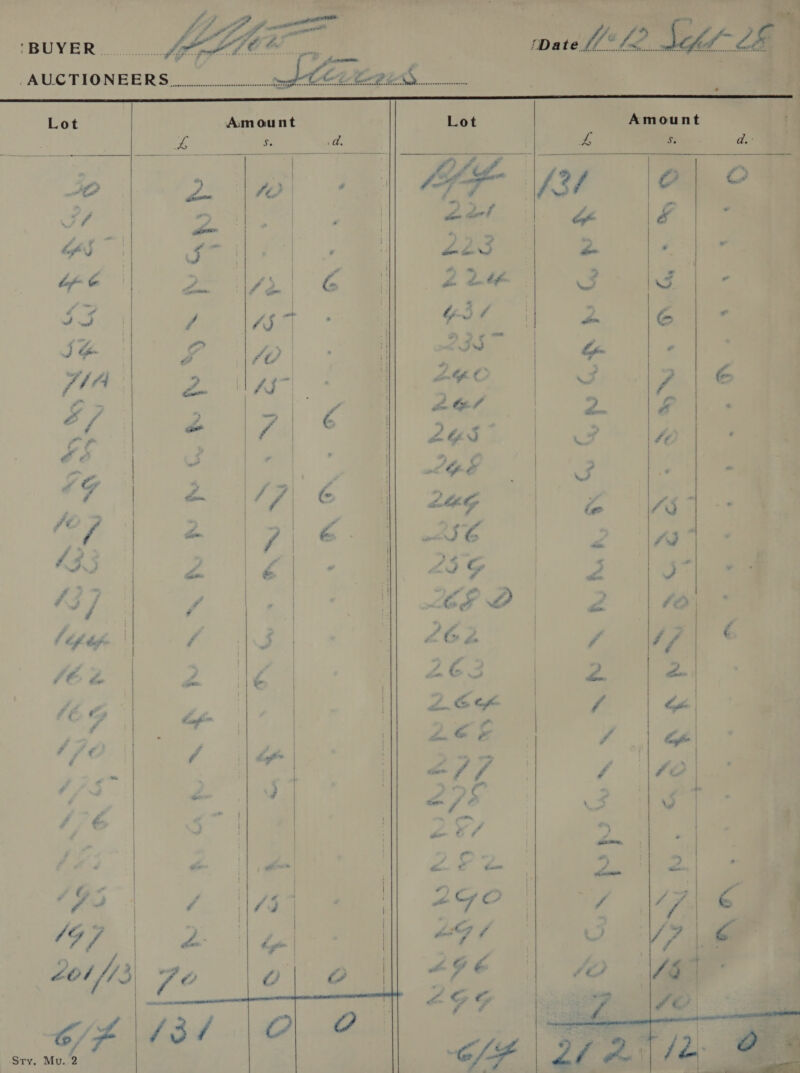 BUYER
Date 11 & 12 Sept 28
AUCTIONEERS Stevens
Lot Amount Lot Amount
£ s. d. £ s. d.
30 2 10 .
31 2 . .
45 5 . .
46 2 12 6
53 1 15 .
54 8 10 .
71A 2 15 .
87 2 7 6
88 3 . .
89 2 17 6
107 2 7 6
133 2 6 .
137 1 . .
144 1 3 .
162 2 6 .
169 4 . .
170 1 4 .
175 2 5
176 5
2 2
195 1 15
197 2 4
201/13 70 0 0
C/F 131 0 0
B/F 131 0 0
221 4 8 .
223 2 . .
224 3 3 .
431 2 6 .
235 4 . .
240 3 7 6
241 2 8 .
245 3 10 .
248 3 . .
249 6 15 .
256 2 15 .
259 2 5 .
268 D 2 10 .
262 1 17 6
263 2 2
264 1 4
268 1 4
277 1 10
278 3 5
281 2 .
282 2 2 .
290 1 17 6
291 3 17 6
296 10 15 .
299 7 10
C/F 212 12 0
Sry. Mu. 2